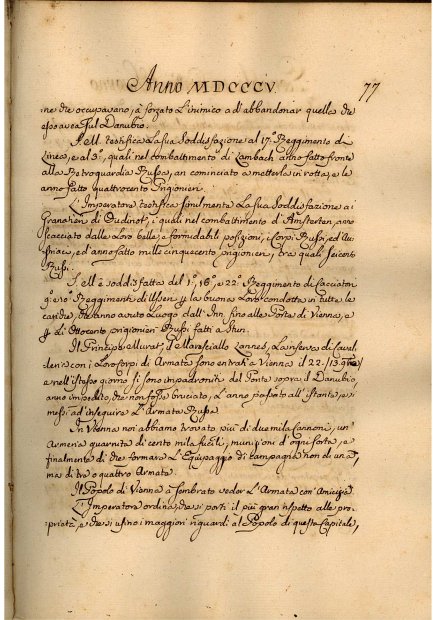 Anno MDCCCV. 77
ne che occupavano, à forzato L'inimico a d'abbandonar quelle che
esso avea sul Danubio.
S. M. testifica la sua Soddisfazione al 17º Reggimento di
Linea, e al 3º, quali nel combattimento di Lambach anno fatto fronte
alla Retroguardia Russa, an cominciato a metterla in rotta, e le
anno fatto quattrocento Prigionieri.
L'Imperatore testifica similmente La sua Soddisfazione ai
Granatieri di Oudinot, i quali nel combattimento d'Amsterten, anno
scacciato dalle Loro belle, e formidabili posizioni, i Corpi Russi, ed Au
striaci, ed anno fatto mille cinquecento prigionieri, tra quali seicento
Russi.
S. M. è soddisfatta del 1º, 16º, e 22º Reggimento di Cacciatori
9º e 10º Reggimenti di Usseri p. la buona Loro condotta in tutte le
cariche, che anno avuto Luogo dall'Inn, fino alle Porte di Vienna, e
p. li Ottocento prigionieri Russi fatti a Stein.
Il Principe Murat, il Maresciallo Lannes, La riserva di Cavel
deria co i Loro Corpi di Armata sono entrati a Vienna il 22. / 13
e nell'istesso giorno si sono impadroniti del Ponte sopra il Danubio,
anno impedito, che non fosse bruciato, L'anno passato all'istante, e si
messi ad inseguire L'Armata Russa.
In Vienna noi abbiamo trovato piu' di due mila Cannoni, un'
Armeria guarnita di cento mila fucili, munizioni d'ogni sorta, e
finalmente di che formare L'Equipaggio di Campagna non di una,
ma di tre o quattro Armate.
Il Popolo di Vienna à sembrato veder L'Armata con Amicizia
L'Imperatore ordina, che si porti il piu' gran rispetto alle pro
prietà, e che si usino i maggiori riguardi al Popolo di questa Capitale,